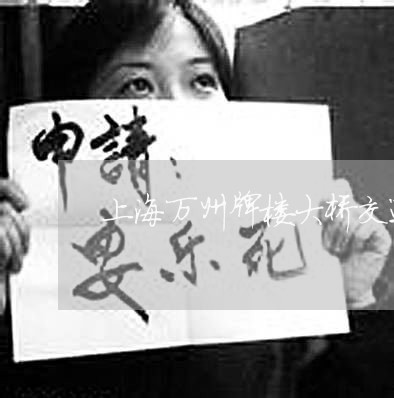 申請：
上海万州牌楼大桥交
安乐死